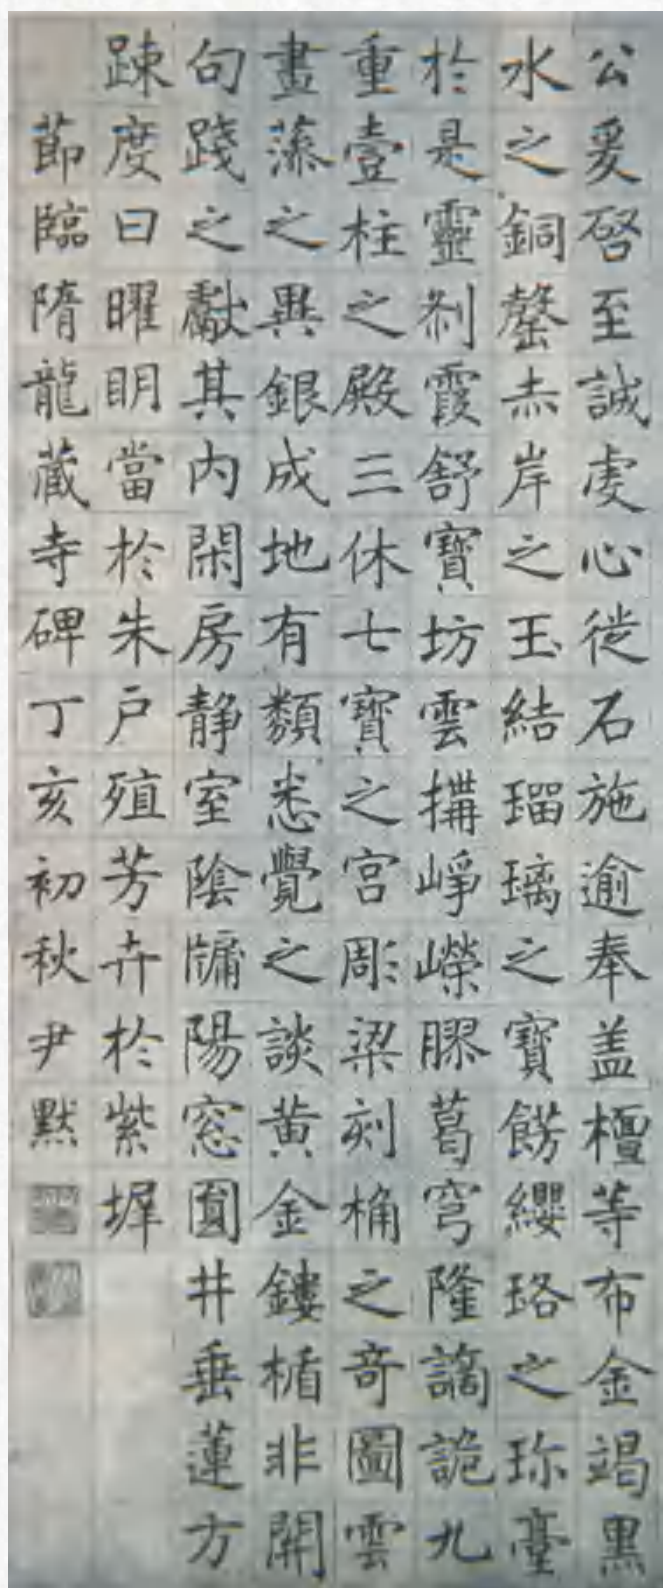 公爰啓至誠虔心徙石施逾奉盖檀等布金竭黑
水之銅罄赤岸之玉結瑠璃之寶餝纓珞之珎臺
於是靈刹霞舒寶坊雲搆崢嶸膠葛穹隆譎詭九
重壹柱之殿三休七寶之宮彫梁刻桷之竒圖雲
畫藻之異銀成地有類悉覺之談黄金鏤楯非開
句踐之獻其内閑房静室陰牖陽窓圎井垂蓮方
踈度日曜明當於朱戸殖芳卉於紫墀
節臨隋龍藏寺碑丁亥初秋尹默